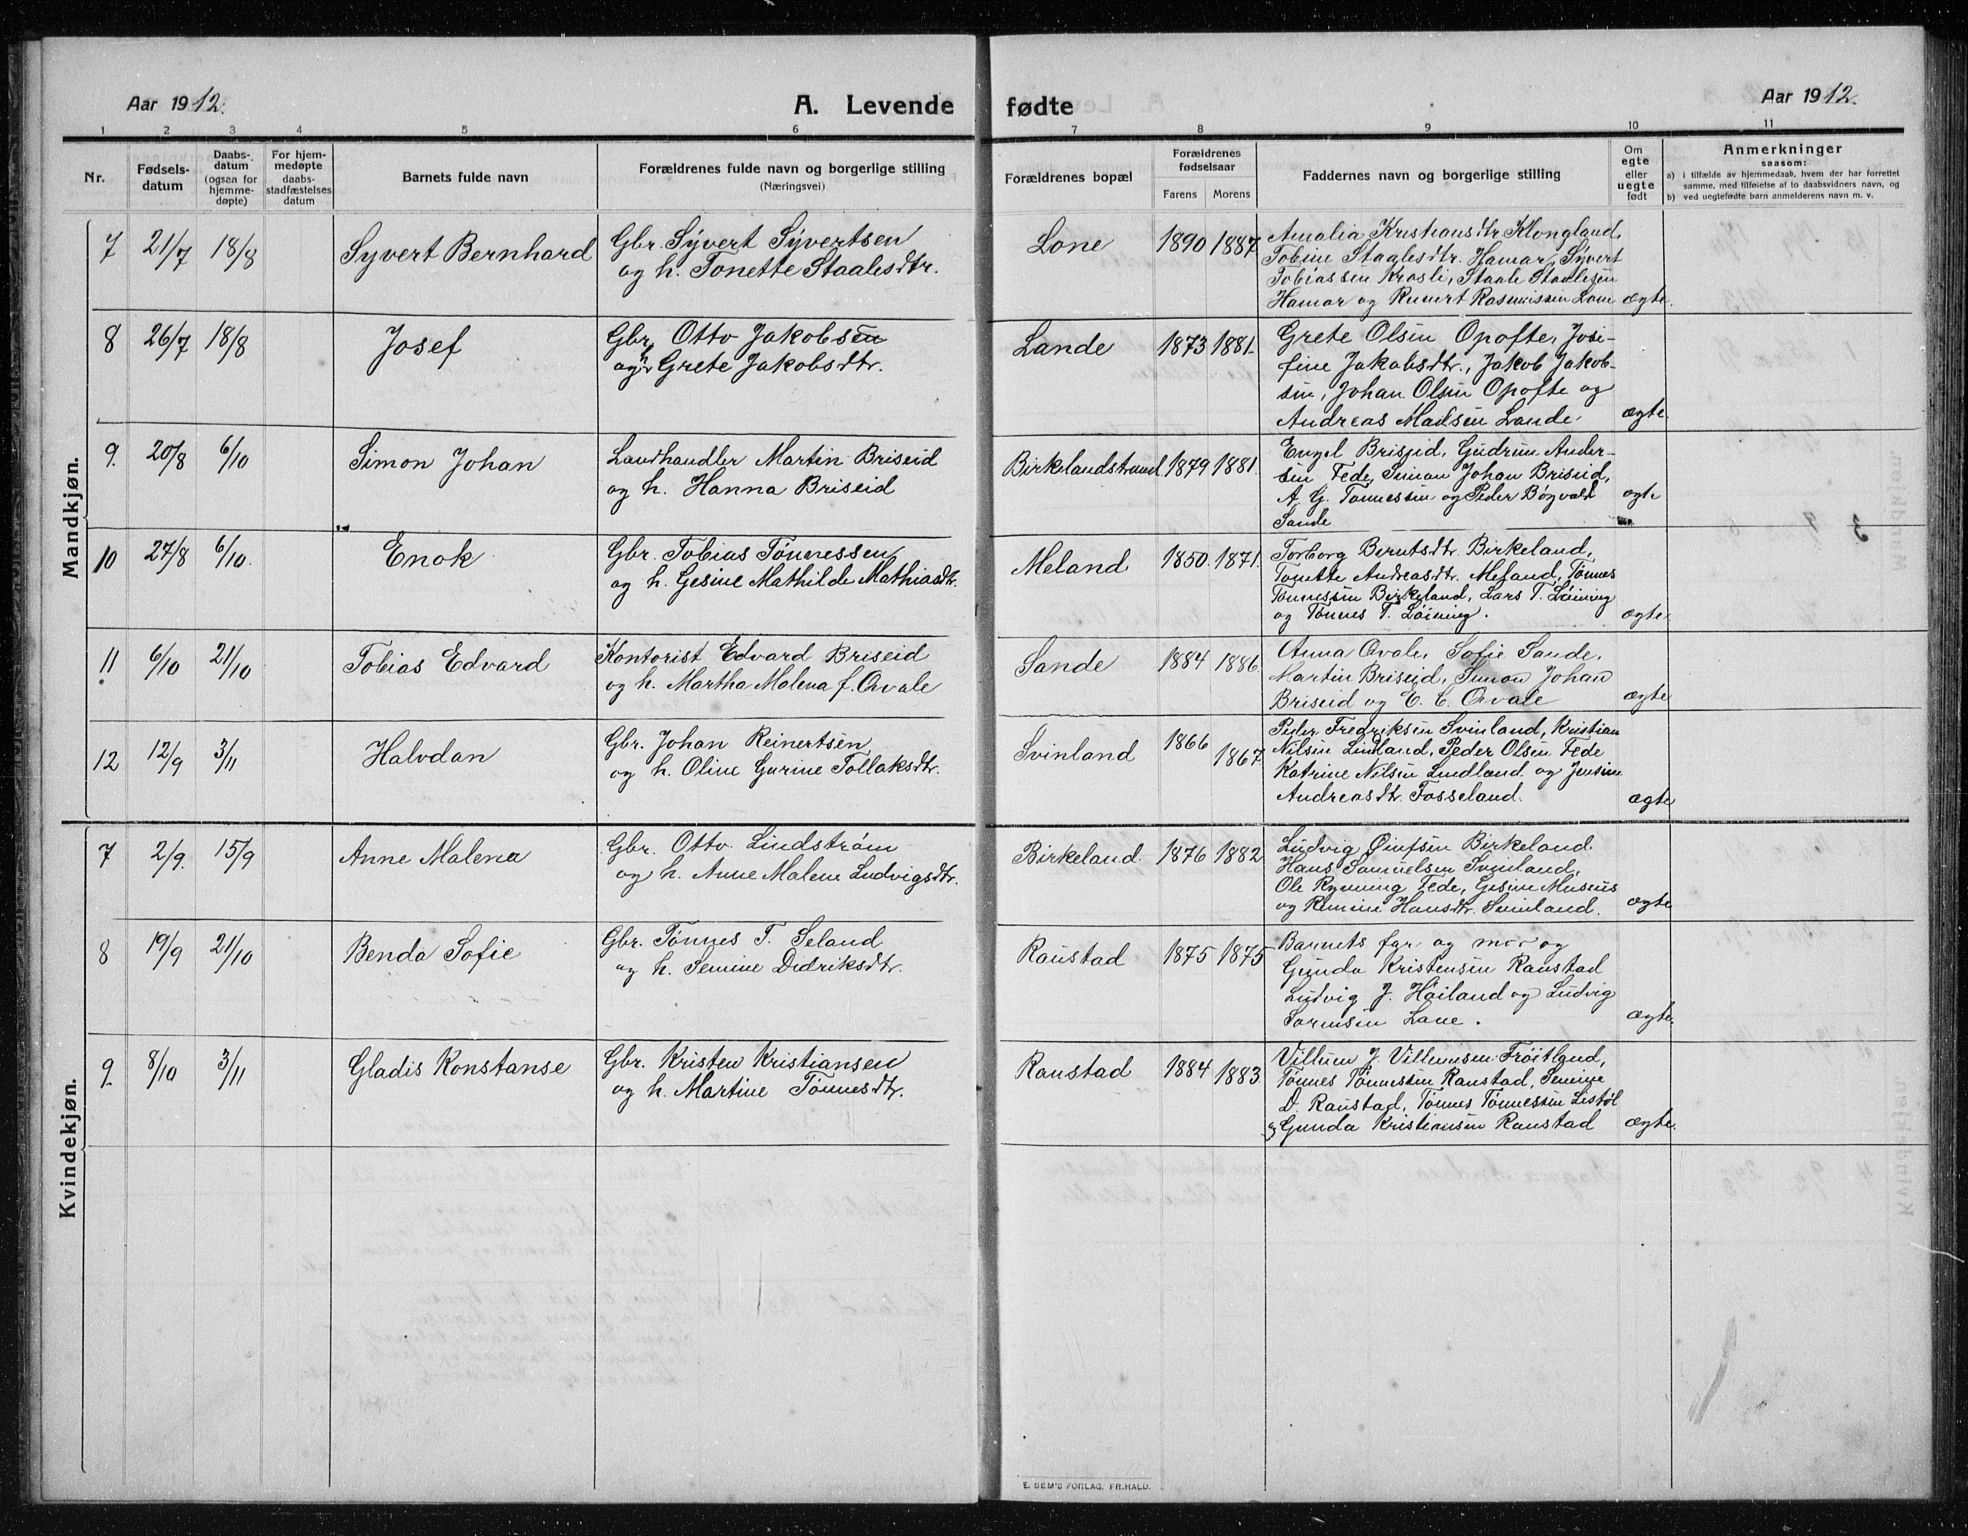 Aar 1912. A. Levende fødte Aar 1912.
1 2 3 4 5 6 7 8 9 10 11
Nr.
Fødsels-
datum
Daabs-
datum
(ogsaa for
hjemme-
døpte)
For hjem-
medøpte
daabs-
stadfæstelses
datum
Barnets fulde navn
Forældrenes fulde navn og borgerlige stilling
(Næringsvei)
Forældrenes bopæl
Forældrenes
fødselsaar
Farens Morens
Faddernes navn og borgerlige stilling
Om
egte
eller
uegte
født
Anmerkninger
saasom:
a) i tilfælde av hjemmedaab, hvem der har forrettet
samme, med tilføielse af to daabsvidners navn, og
b) ved uegtefødte barn anmelderens navn m. v.
Mandkjøn.
7 21/7 18/8 Syvert Bernhard
Gbr. Syvert Syvertsen
og h. Tonette Staalesdtr.
Lone 1890 1887
Amalia Kristiansdtr Klongland
Tobine Staalesdtr. Hamar, Syvert
Tobiassen Krosli, Staale Staalesen
Hamar og Reinert Rasmussen Lone ægte.
8 26/7 18/8 Josef
Gbr. Otto Jakobsen
og h. Grete Jakobsdtr.
Lande 1873 1881.
Grete Olsen Opofte, Josi-
fine Jakobsdtr., Jakob Jakob-
sen, Johan Olsen Opofte og
Andreas Madsen Lande. ægte.
9. 20/8 6/10 Simon Johan
Landhandler Martin Briseid
og h. Hanna Briseid
Birkelandstrand 1879 1881.
Engel Briseid, Gudrun Ander-
sen Fede, Simon Johan Briseid,
A. G. Tønnessen og Peder Bøgvald
Sande ægte
10 27/8 6/10. Enok
Gbr. Tobias Tønnessen
og h. Gesine Mathilde Mathiasdtr.
Meland 1850. 1871.
Torborg Berntsdtr. Birkeland,
Tonette Andreasdtr. Meland, Tønnes
Tønnessen Birkeland, Lars T. Løining
og Tønnes T. Løining. ægte.
11 6/10 21/10 Tobias Edvard
Kontorist Edvard Briseid
og h. Martha Malena f. Ovale
Sande 1884 1886.
Anna Ovale, Sofie Sande,
Martin Briseid, Simon Johan
Briseid og E. C. Ovale ægte
12 12/9 3/11 Halvdan
Gbr. Johan Reinertsen
og h. Oline Gurine Tollaksdtr.
Svinland 1866 1867.
Peder Fredriksen Svinland, Kristian
Nilsen Lindland, Peder Olsen Fede
Katrine Nilsen Lindland og Jensine
Andreasdtr. Fosseland. ægte
Kvindekjøn.
7 2/9. 15/9 Anne Malena
Gbr. Otto Lindstrøm
og h. Anne Malene Ludvigsdtr.
Birkeland. 1876 1882
Ludvig Øinfsen Birkeland.
Hans Samuelsen Svinland,
Ole Rynning Fede, Gesine Museus
og Hansdtr. Svinland. ægte
8 19/9 21/10 Benda Sofie
Gbr. Tønnes T. Seland
og h. Semine Didriksdtr.
Raustad 1875 1875
Barnets far og mor og
Gunda Kristensen Raustad
Ludvig J. Høiland og Ludvig
Sørensen Lone. ægte.
9. 8/10 3/11 Gladis Konstanse
Gbr. Kristen Kristiansen
og h. Martine Tønnesdtr.
Raustad 1884 1883.
Villum J. Villumsen Frøitland,
Tønnes Tønnessen Raustad, Semine
D. Raustad, Tønnes Tønnessen Listøl
og Gunda Kristiansen Raustad ægte.
E. SEM'S FORLAG, FR.HALD.